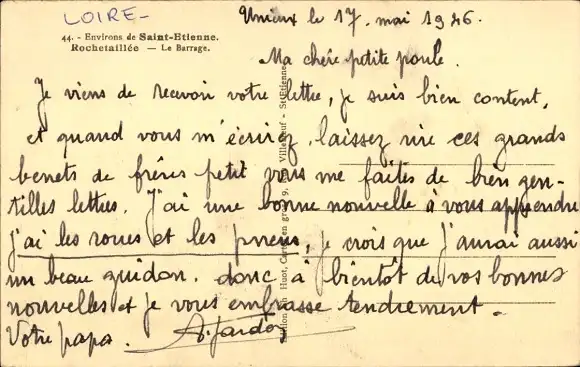 LOIRE-
Unieux le 17. mai 1946.
44. - Environs de Saint-Etienne.
Rochetaillée — Le Barrage.
Ma chère petite poule.
Je viens de recevoir votre lettre, je suis bien content,
et quand vous m'écrirez, laissez rire ces grands
benets de frères petit vous me faites de bien gen-
tilles lettres. J'ai une bonne nouvelle à vous apprendre
j'ai les roues et les pneus, je crois que j'aurai aussi
un beau guidon. donc à bientôt de vos bonnes
nouvelles et je vous embrasse tendrement.
Votre papa. A. Jardon
Huot, Cartes en gros, 9, Villebœuf - St-Etienne